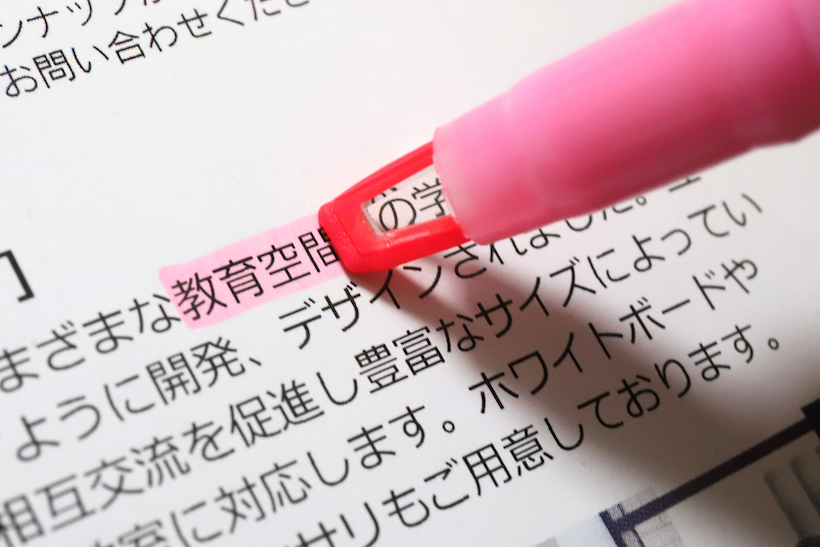 ンナップ
お問い合わせくださ
]
まざまな教育空間の学
ように開発、デザインされました。
相互交流を促進し豊富なサイズによってい
に対応します。ホワイトボードや
サリもご用意しております。